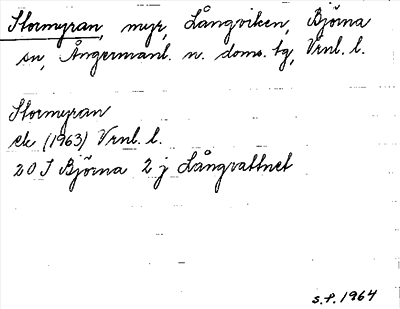 Stormyran, myr, Långviken, Björna
sn, Ångermanl. n. doms. tg, Vrnl. l.
Stormyran
ek (1963) Vrnl. l.
20 J Björna 2 j Långvattnet
S.P. 1964